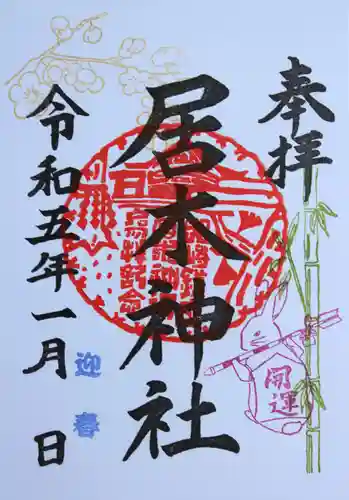 奉拝
居木神社
令和五年一月 日
迎春
開運